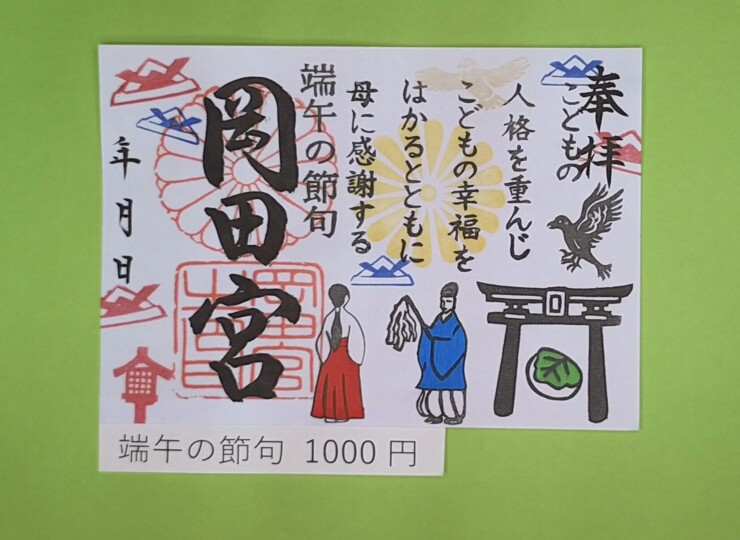 奉拝
こどもの
人格を重んじ
こどもの幸福を
はかるとともに
母に感謝する
端午の節句
岡田宮
年月日
端午の節句 1000円